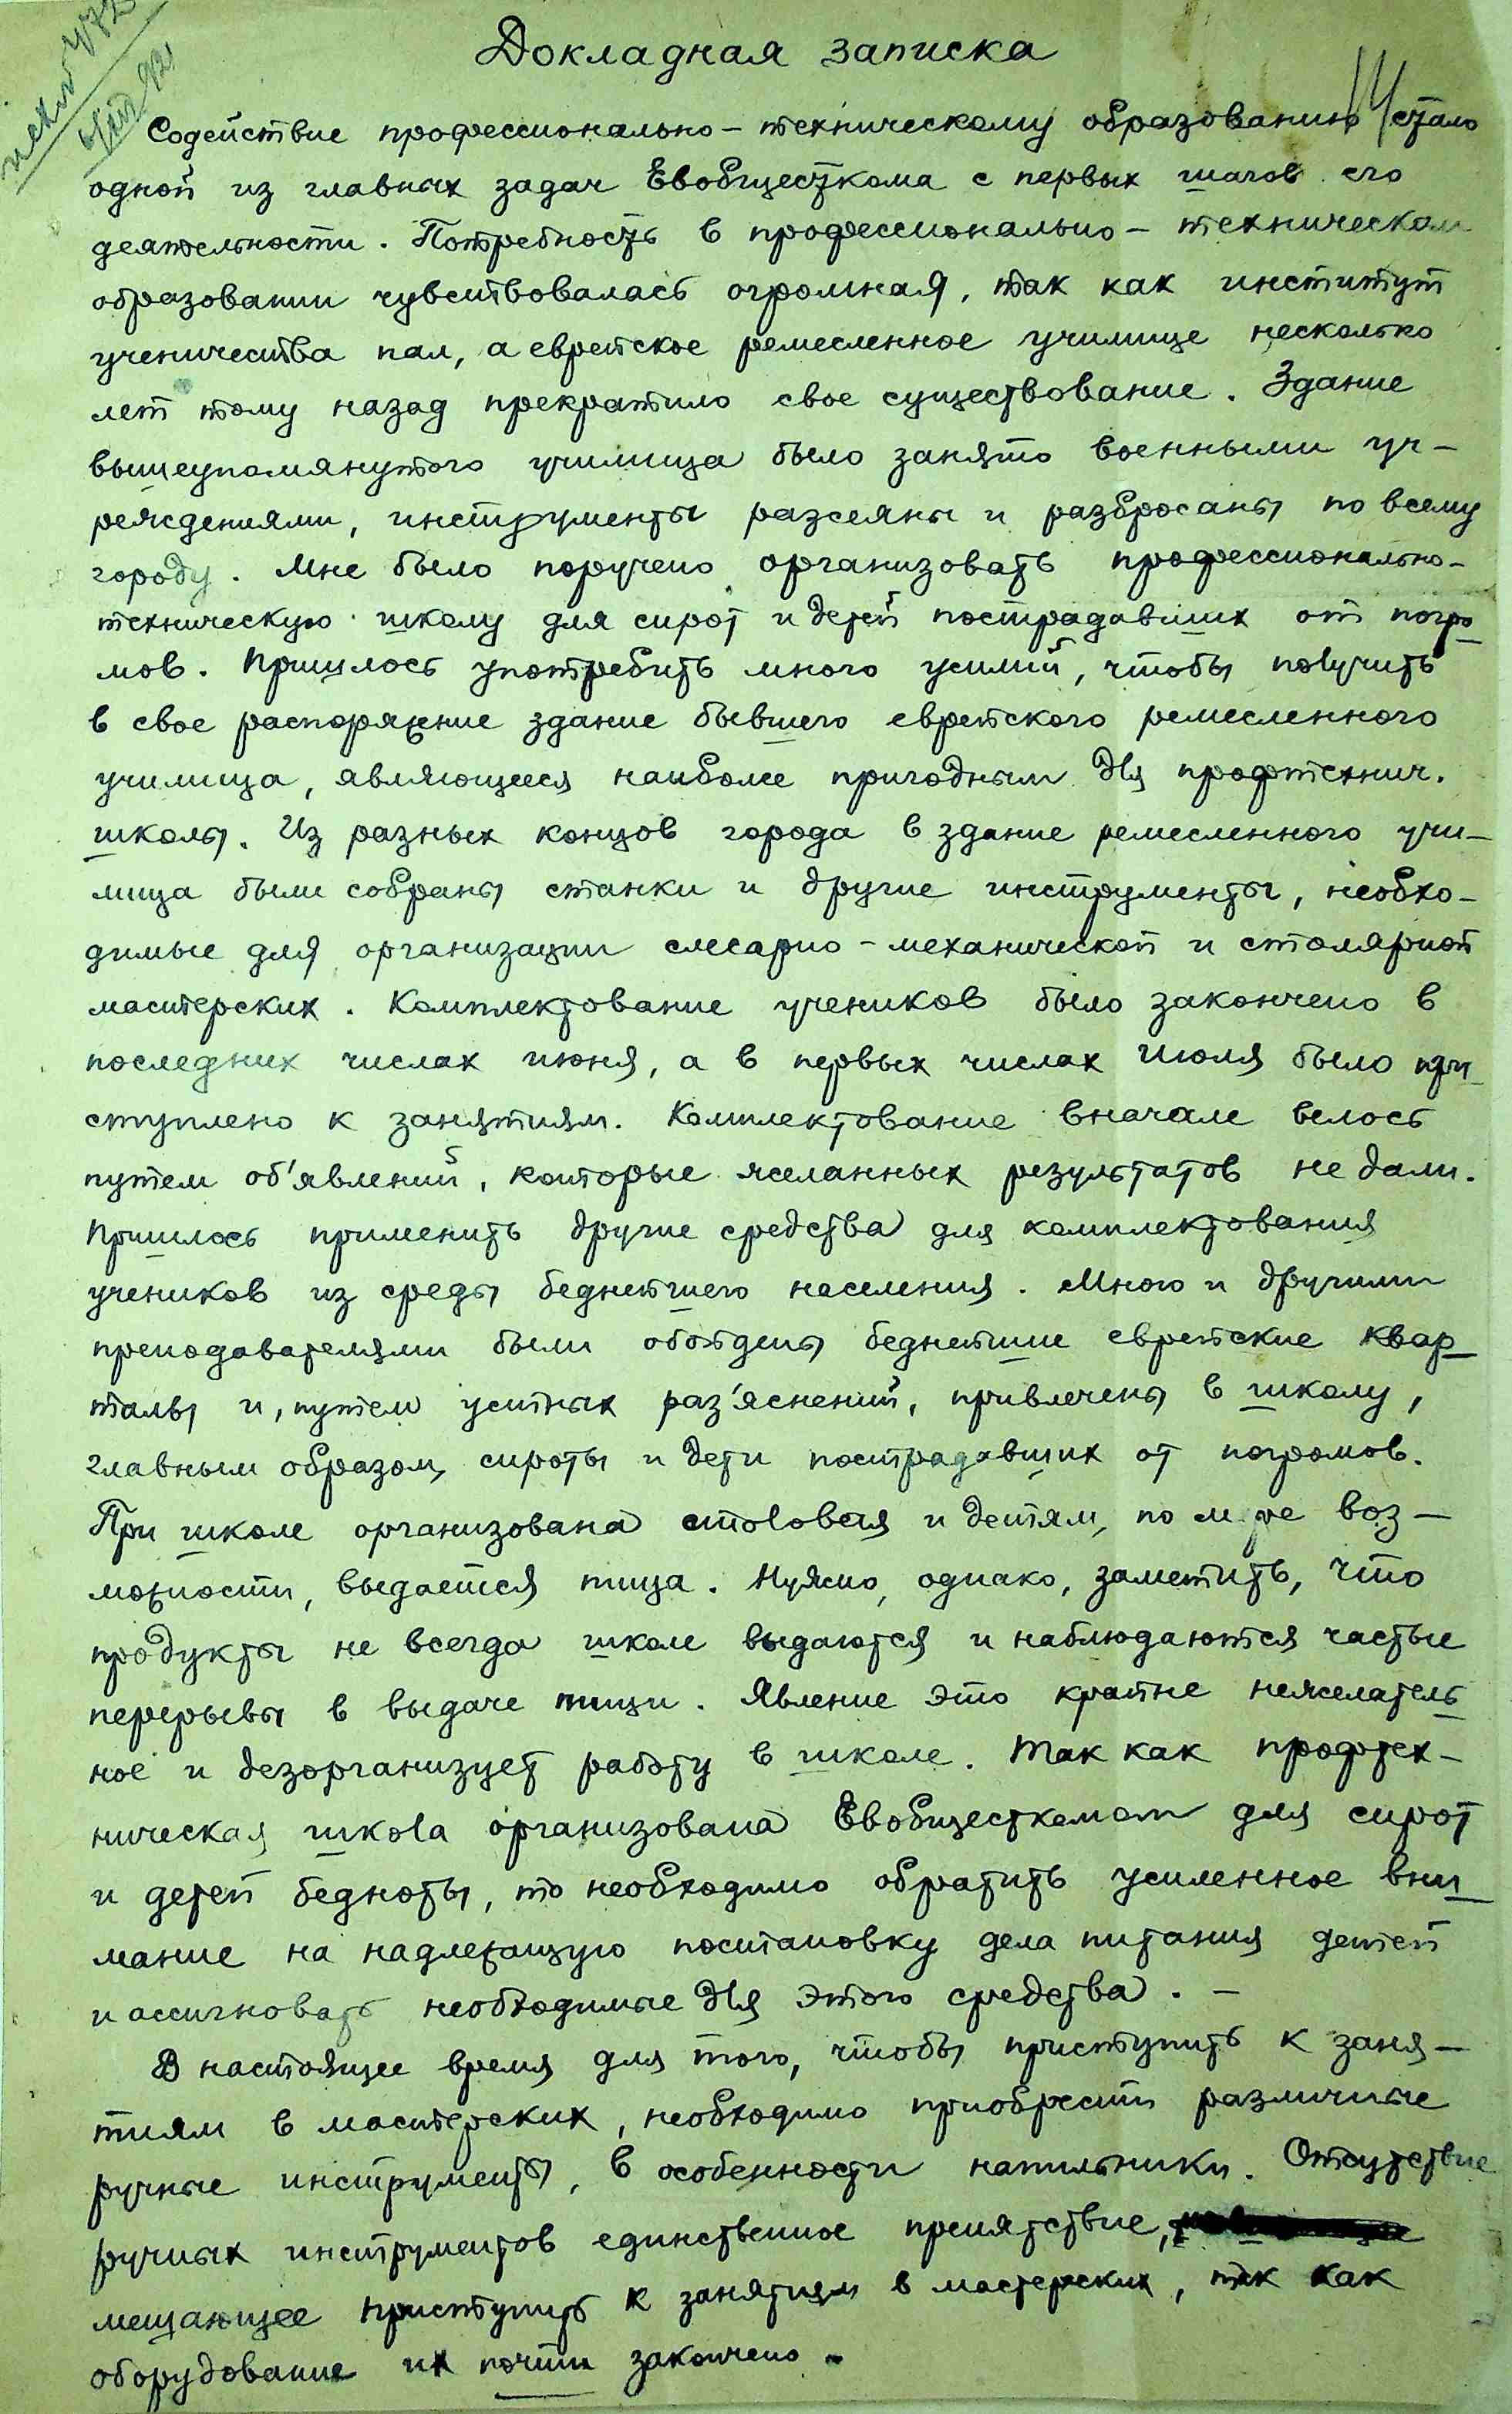 Докладная записка
Содействие профессионально-техническому образованию стало
одной из главных задач Евобщесткома с первых шагов его
деятельности. Потребность в профессионально-техническом
образовании чувствовалась огромная, так как институт
ученичества пал, а еврейское ремесленное училище несколько
лет тому назад прекратило свое существование. Здание
вышеупомянутого училища было занято военными уч-
реждениями, инструменты разсеяны и разбросаны по всему
городу. Мне было поручено организовать профессионально-
техническую школу для сирот и детей пострадавших от погро-
мов. Пришлось употребить много усилий, чтобы получить
в свое распоряжние здание бывшего еврейского ремесленного
училища, являющееся наиболее пригодным для профтехнич.
школы. Из разных концов города в здание ремесленного учи-
лища были собраны станки и другие инструменты, необхо-
димые для организации слесарно-механической и столярной
мастерских. Комплектование учеников было закончено в
последних числах июня, а в первых числах июля было при-
ступлено к занятиям. Комплектование вначале велось
путем об'явлений, которые желанных результатов не дали.
Пришлось применить другие средства для комплектования
учеников из среды беднейшего населения. Мною и другими
преподавателями были обойдены беднейшие еврейские квар-
талы и, путем устных раз'яснений, привлечены в школу,
главным образом, сироты и дети пострадавших от погромов.
При школе организована столовая и детям, по мере воз-
можности, выдается пища. Нужно, однако, заметить, что
продукты не всегда школе выдаются и наблюдаются частые
перерывы в выдаче пищи. Явление это крайне нежелатель-
ное и дезорганизует работу в школе. Так как профтех-
ническая школа организована Евобщесткомом для сирот
и детей бедноты, то необходимо обратить усиленное вни-
мание на надлежащую постановку дела питания детей
и ассигновать необходимые для этого средства. -
В настоящее время для того, чтобы приступить к заня-
тиям в мастерских, необходимо приобрести различные
ручные инструменты, в особенности напильники. Отсутствие
ручных инструментов единственное препятствие,
мешающее приступить к занятиям в мастерских, так как
оборудование их почти закончено.